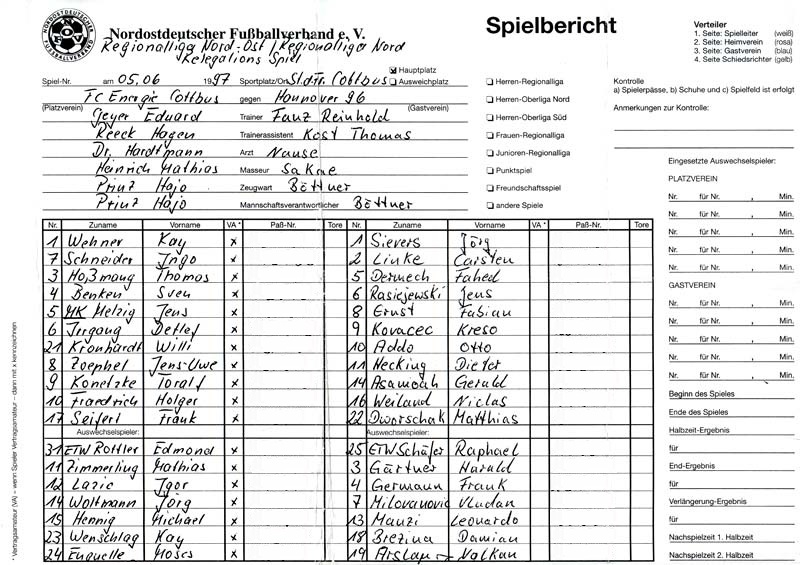 NORDOSTDEUTSCHER FUSSBALLVERBAND
Nordostdeutscher Fußballverband e. V.
Regionalliga Nord-Ost / Regionalliga Nord
Relegations Spiel
Spielbericht
Verteiler
1. Seite: Spielleiter (weiß)
2. Seite: Heimverein (rosa)
3. Seite: Gastverein (blau)
4. Seite Schiedsrichter (gelb)
Spiel-Nr. am 05.06 1997 Sportplatz/Ort Stdtn. Cottbus
Hauptplatz
Ausweichplatz
FC Energie Cottbus gegen Hannover 96
(Platzverein) (Gastverein)
Geyer Eduard Trainer Fanz Reinhold
Reeck Hagen Trainerassistent Kost Thomas
Dr. Hardtmann Arzt Nause
Heinrich Mathias Masseur Sakae
Prinz Hajo Zeugwart Böttner
Prinz Hajo Mannschaftsverantwortlicher Böttner
Herren-Regionalliga
Herren-Oberliga Nord
Herren-Oberliga Süd
Frauen-Regionalliga
Junioren-Regionalliga
Punktspiel
Freundschaftsspiel
andere Spiele
Kontrolle
a) Spielerpässe, b) Schuhe und c) Spielfeld ist erfolgt
Anmerkungen zur Kontrolle:
Nr. Zuname Vorname VA* Paß-Nr. Tore Nr. Zuname Vorname VA* Paß-Nr. Tore
1 Wehner Kay x 1 Sievers Jörg
7 Schneider Ingo x 2 Linke Carsten
3 Hoßmang Thomas x 5 Dermech Fahed
4 Benken Sven x 6 Rasiejewski Jens
5 MK Melzig Jens x 8 Ernst Fabian
6 Irrgang Detlef x 9 Kovacec Kreso
21 Kronhardt Willi x 10 Addo Otto
8 Zoephel Jens-Uwe x 11 Hecking Dieter
9 Konetzke Toralf x 14 Asamoah Gerald
10 Friedrich Holger x 16 Weiland Niclas
17 Seifert Frank x 22 Dworschak Matthias
Auswechselspieler: Auswechselspieler:
31 ETW Rottler Edmond x 25 ETW Schäfer Raphael
11 Zimmerling Mathias x 3 Gärtner Harald
12 Lazic Igor x 4 Germann Frank
14 Woltmann Jörg x 7 Milovanovic Vladan
15 Hennig Michael x 13 Manzi Leonardo
23 Wenschlag Kay x 18 Brezina Damian
24 Enquelle Moses x 19 Arslan Volkan
* Vertragsamateur (VA) – wenn Spieler Vertragsamateur – dann mit x kennzeichnen
Eingesetzte Auswechselspieler:
PLATZVEREIN
Nr. für Nr. , Min.
Nr. für Nr. , Min.
Nr. für Nr. , Min.
Nr. für Nr. , Min.
Nr. für Nr. , Min.
GASTVEREIN
Nr. für Nr. , Min.
Nr. für Nr. , Min.
Nr. für Nr. , Min.
Nr. für Nr. , Min.
Nr. für Nr. , Min.
Beginn des Spieles
Ende des Spieles
Halbzeit-Ergebnis
für
End-Ergebnis
für
Verlängerung-Ergebnis
für
Nachspielzeit 1. Halbzeit
Nachspielzeit 2. Halbzeit